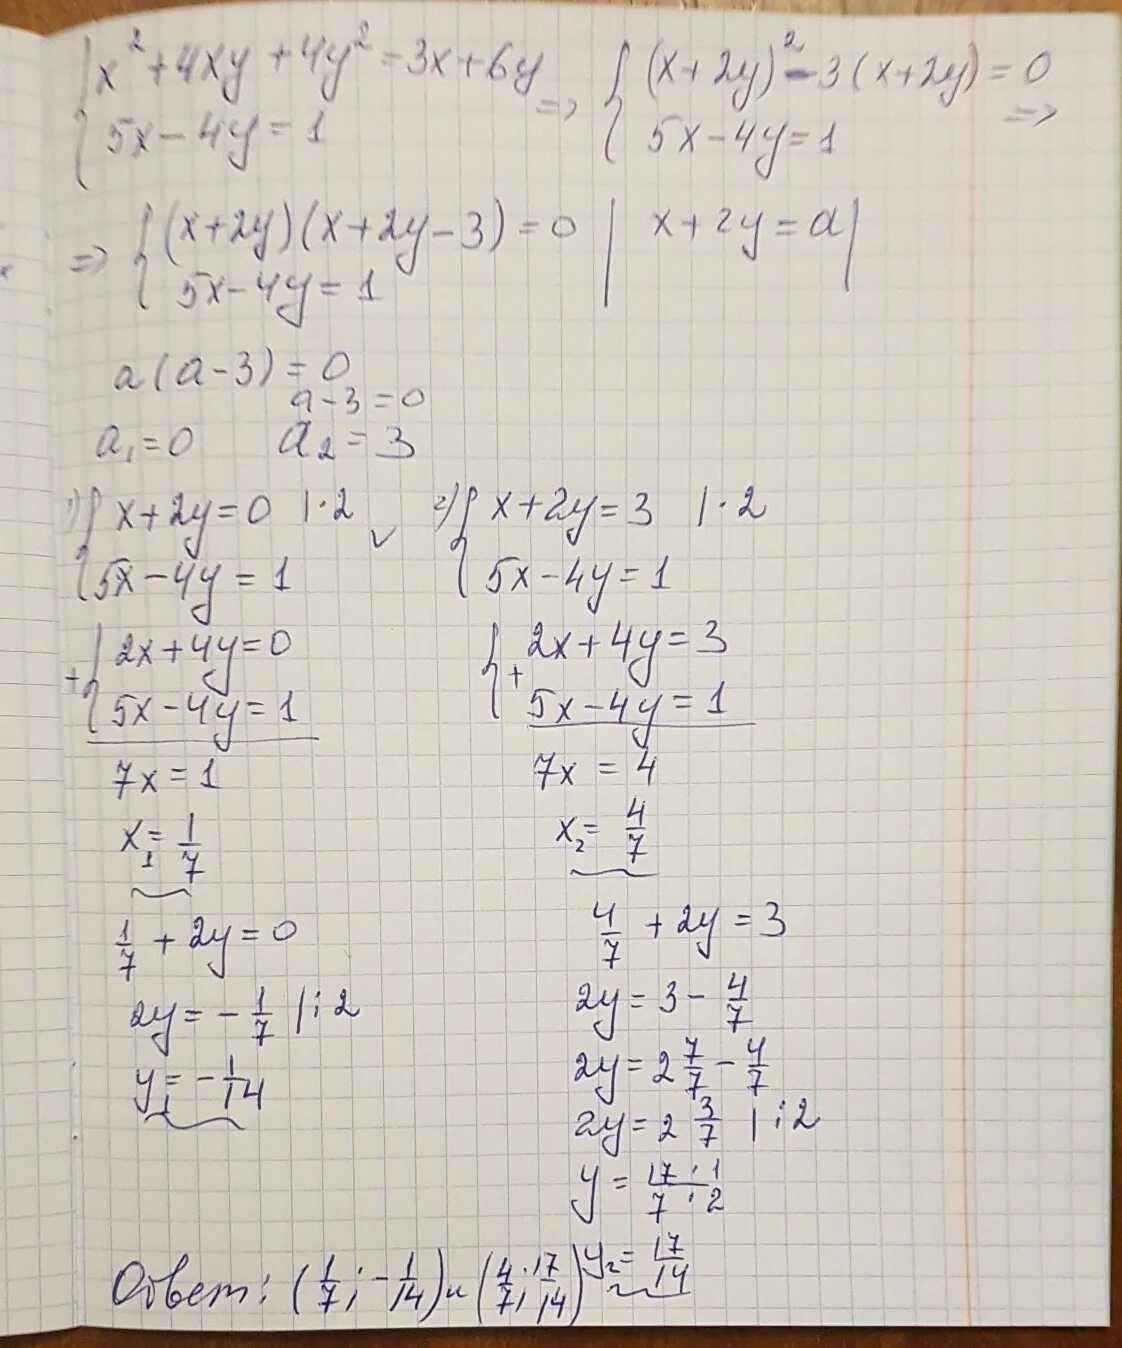 { x² + 4xy + 4y² = 3x + 6y => { (x + 2y)² - 3(x + 2y) = 0 =>
5x - 4y = 1 5x - 4y = 1
=> { (x + 2y)(x + 2y - 3) = 0 | x + 2y = a |
5x - 4y = 1
a(a - 3) = 0
a - 3 = 0
a₁ = 0 a₂ = 3
1) { x + 2y = 0 | · 2
5x - 4y = 1
+ { 2x + 4y = 0
5x - 4y = 1
7x = 1
x₁ = 1/7
1/7 + 2y = 0
2y = - 1/7 | : 2
y₁ = - 1/14
2) { x + 2y = 3 | · 2
5x - 4y = 1
+ { 2x + 4y = 3
5x - 4y = 1
7x = 4
x₂ = 4/7
4/7 + 2y = 3
2y = 3 - 4/7
2y = 2 7/7 - 4/7
2y = 2 3/7 | : 2
y = 17 · 1 / 7 · 2
y₂ = 17/14
Ответ: (1/7; - 1/14) и (4/7; 17/14)